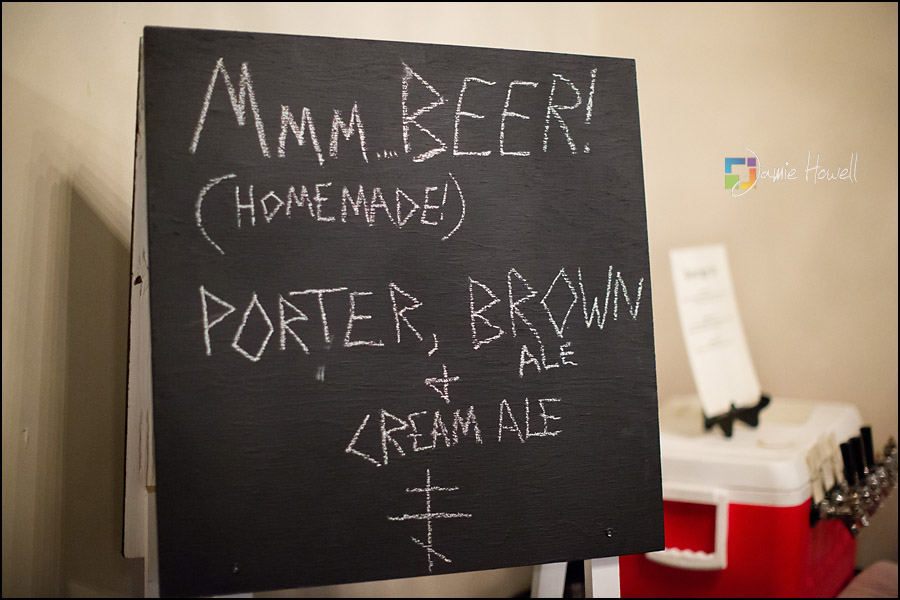 Mmm...BEER!
(HOMEMADE!)
PORTER, BROWN
ALE
+
CREAM ALE
Jamie Howell